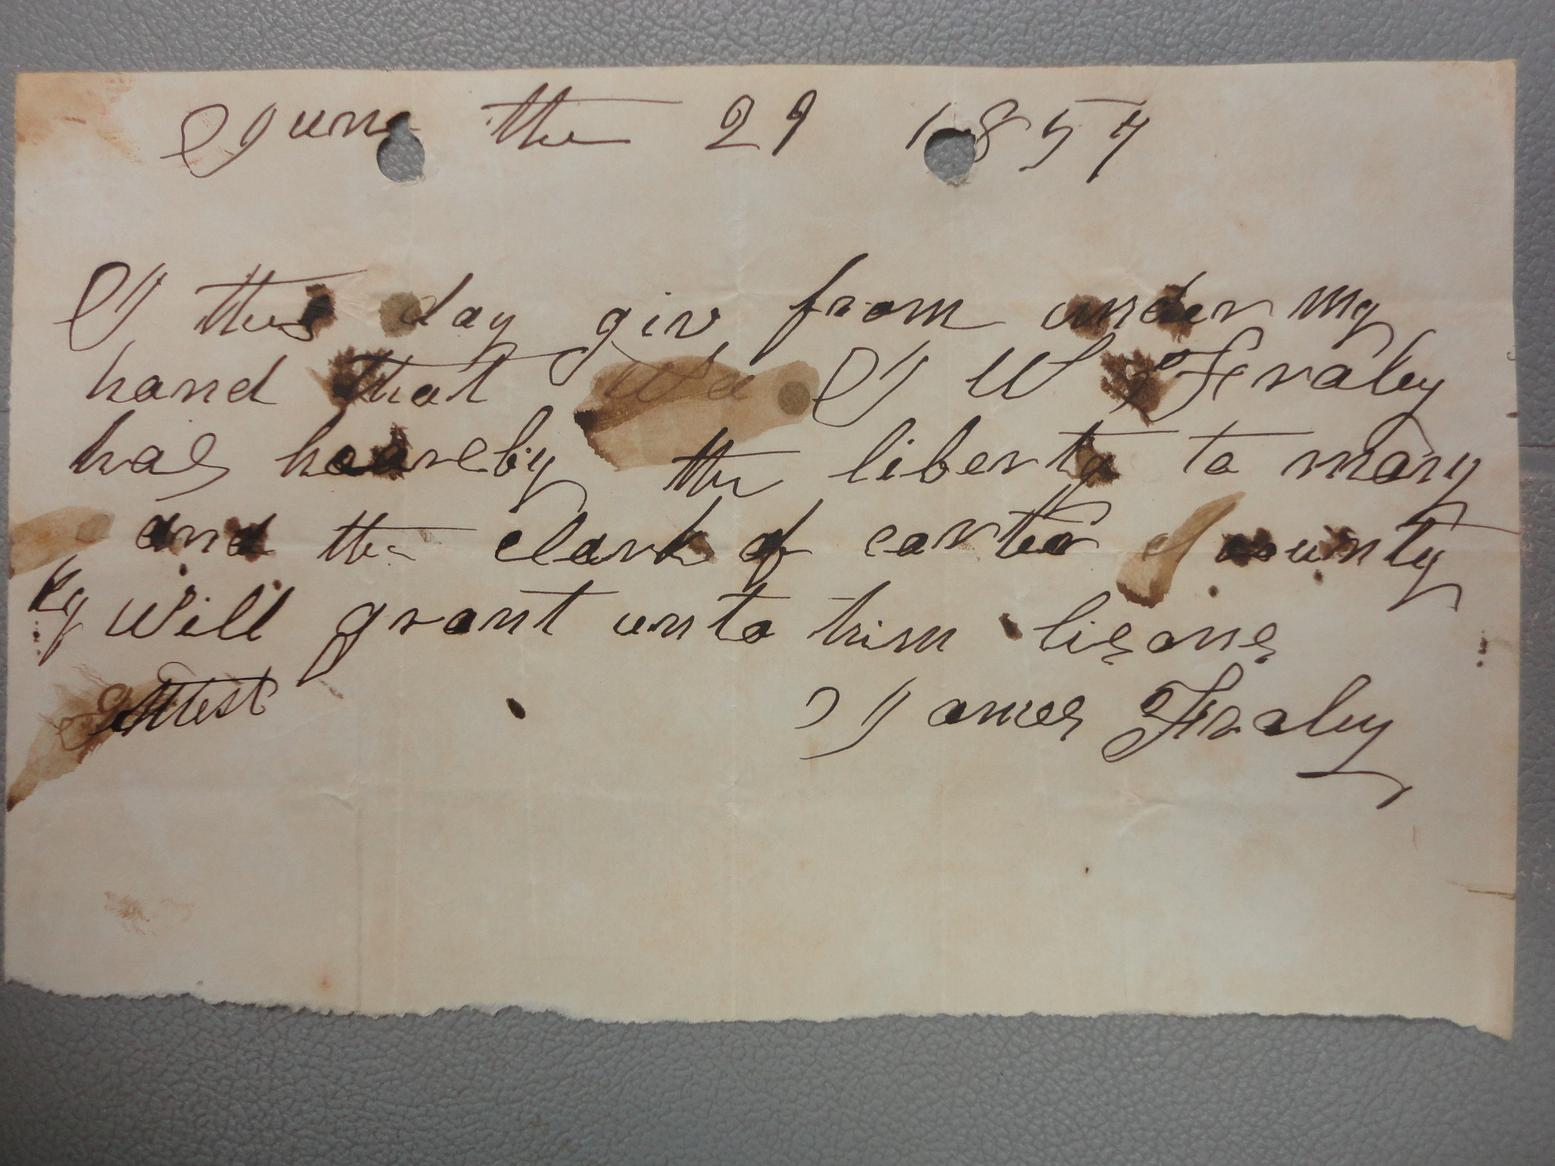 June the 29 1857
I this day giv from under my
hand that I W Fraley
has heareby the liberty to mary
and the clark of carter county
Ky will grant unto him lisans
Attest James Fraley